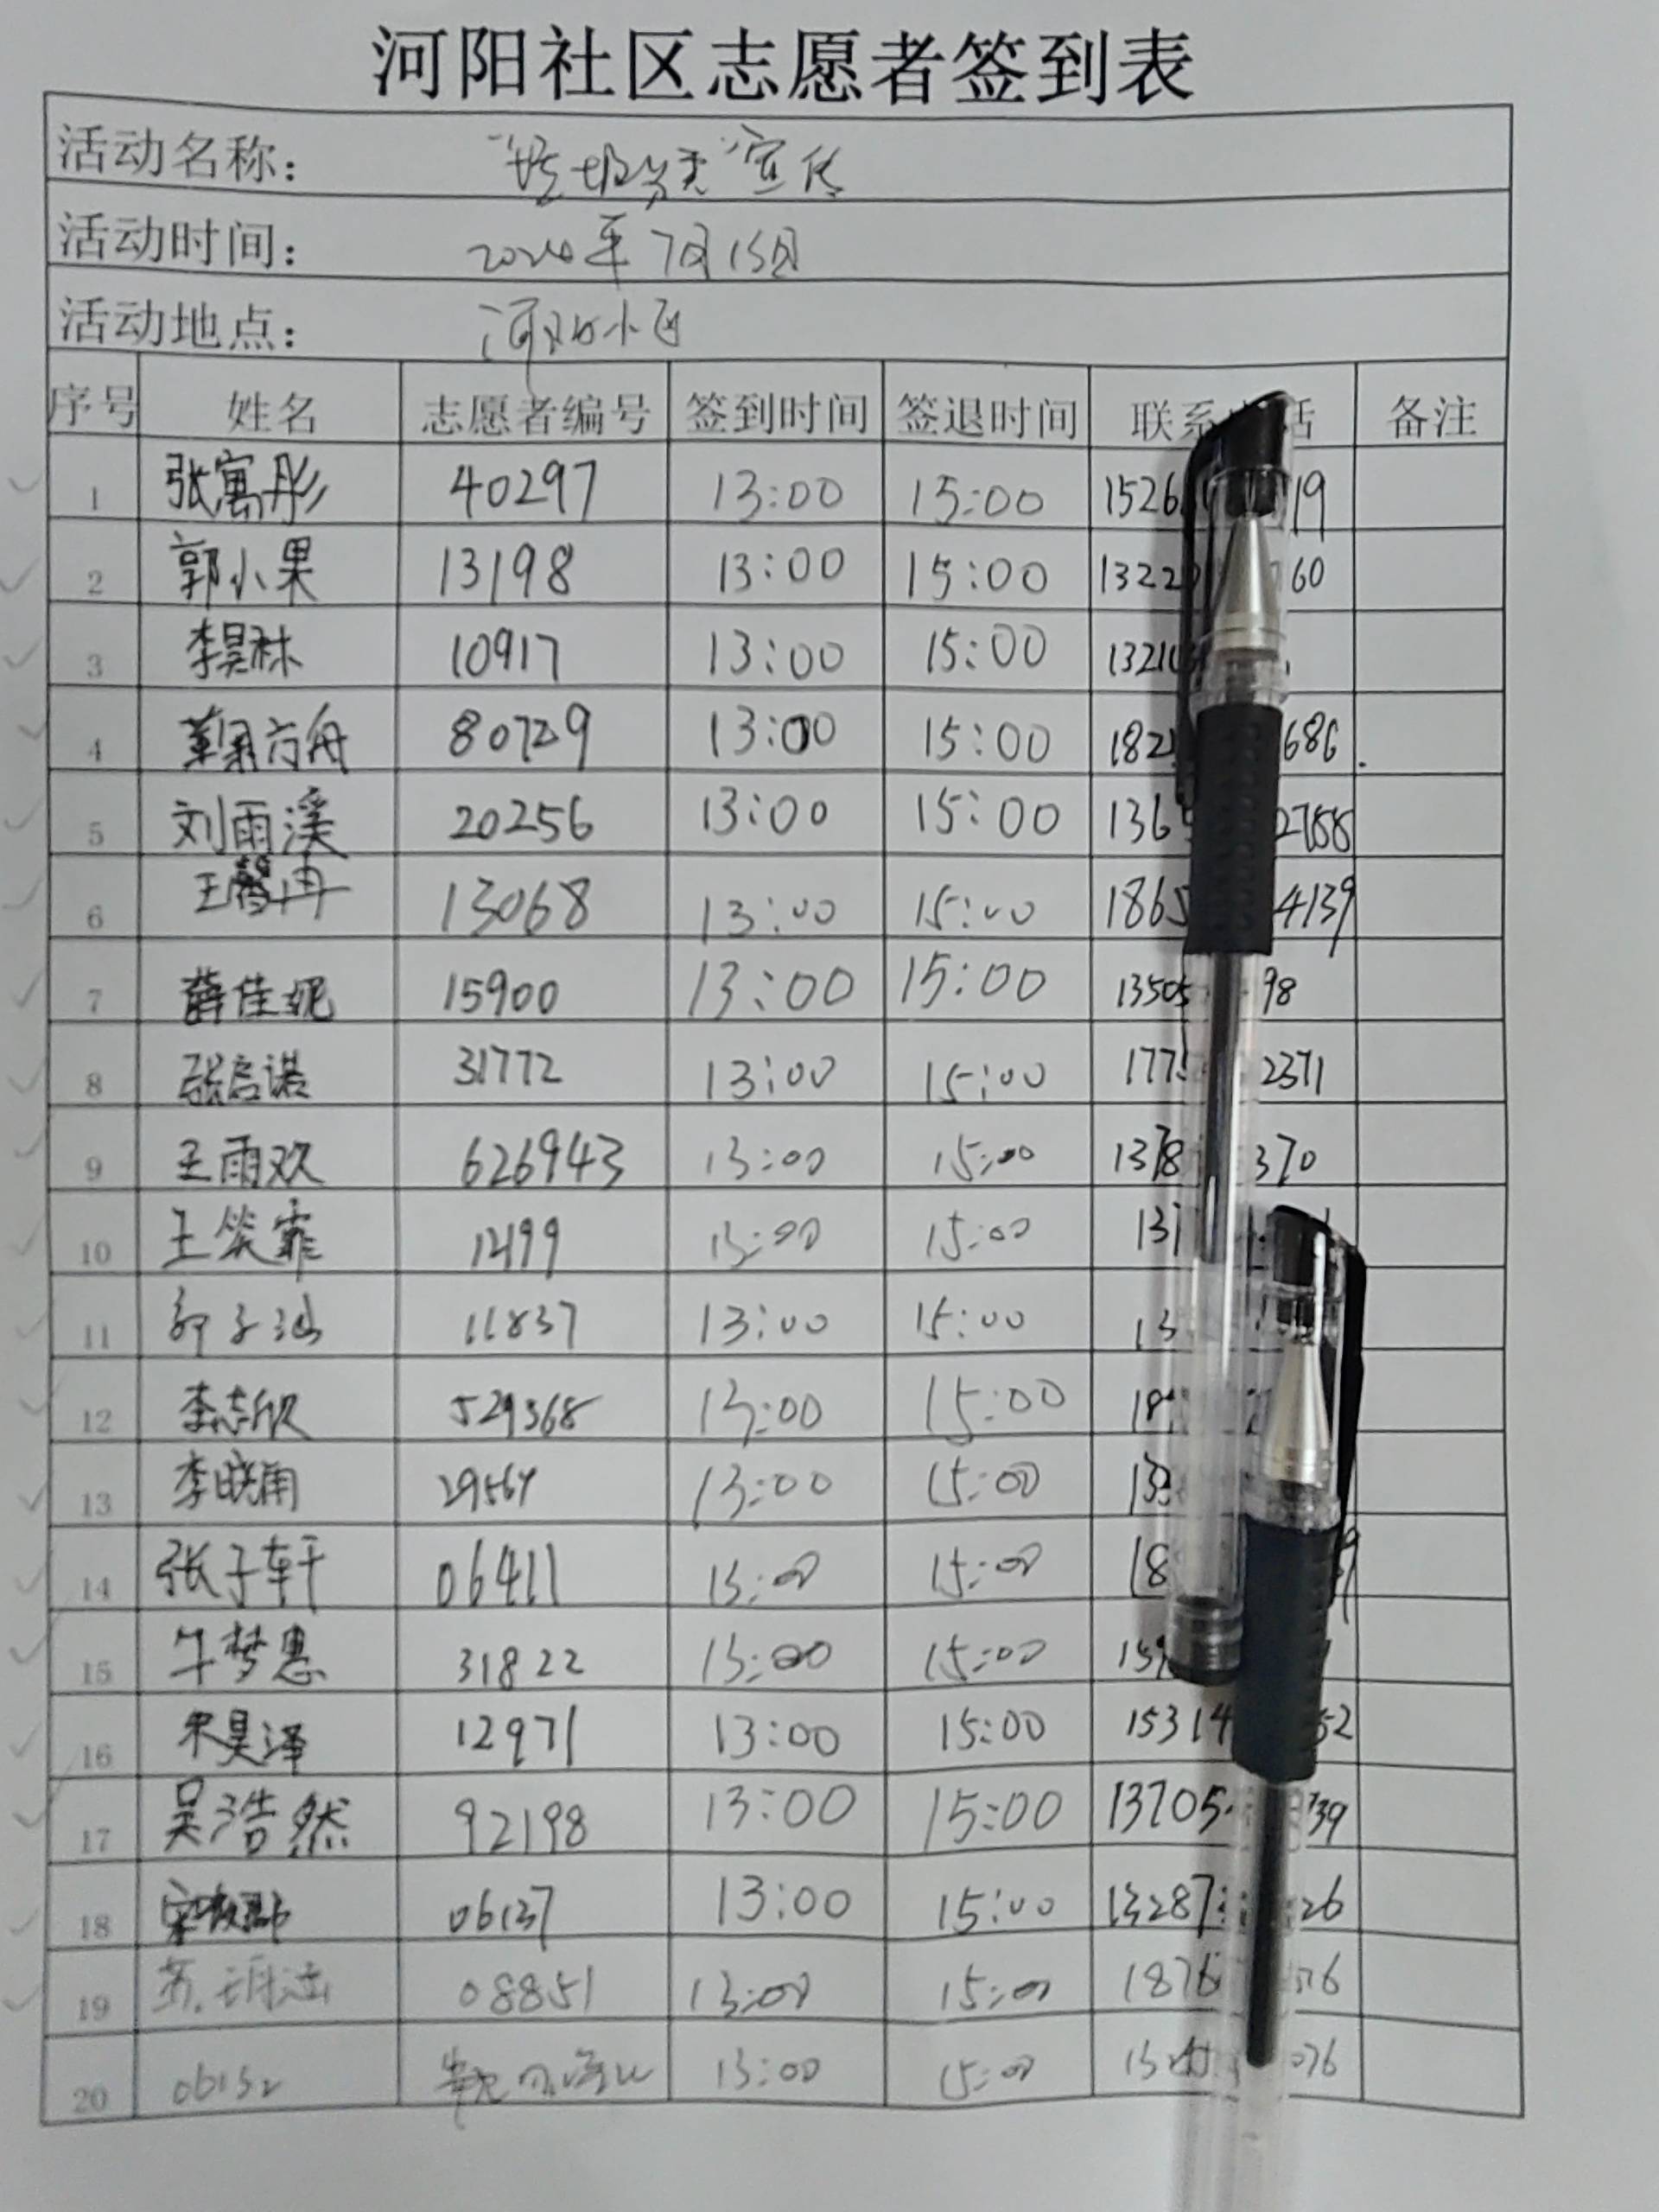 河阳社区志愿者签到表
活动名称： "垃圾分类"宣传
活动时间： 2024年7月15日
活动地点： 河阳小区
序号 姓名 志愿者编号 签到时间 签退时间 联系 话 备注
1 张寓彤 40297 13:00 15:00 1526 19
2 郭小果 13198 13:00 15:00 1322 60
3 李昊霖 10917 13:00 15:00 1321
4 方舟 80729 13:00 15:00 182 686
5 刘雨溪 20256 13:00 15:00 136
6 王馨冉 13068 13:00 15:00 1865 4139
7 薛佳妮 15900 13:00 15:00 13505 98
8 张启诺 31772 13:00 15:00 177 2371
9 王雨欢 626943 13:00 15:00 1378 370
10 王笑霏 13:00 15:00 131
11 子 11837 13:00 15:00 13
12 李志欣 529368 13:00 15:00 18
13 李晓雨 13:00 15:00 13
14 张子轩 06411 13:00 15:00 18
15 牛梦惠 31822 13:00 15:00 159
16 宋昊泽 12971 13:00 15:00 15314 52
17 吴浩然 92198 13:00 15:00 13705 39
18 06137 13:00 15:00 13287 26
19 08851 13:00 15:00 1876 76
20 06132 13:00 15:00 076